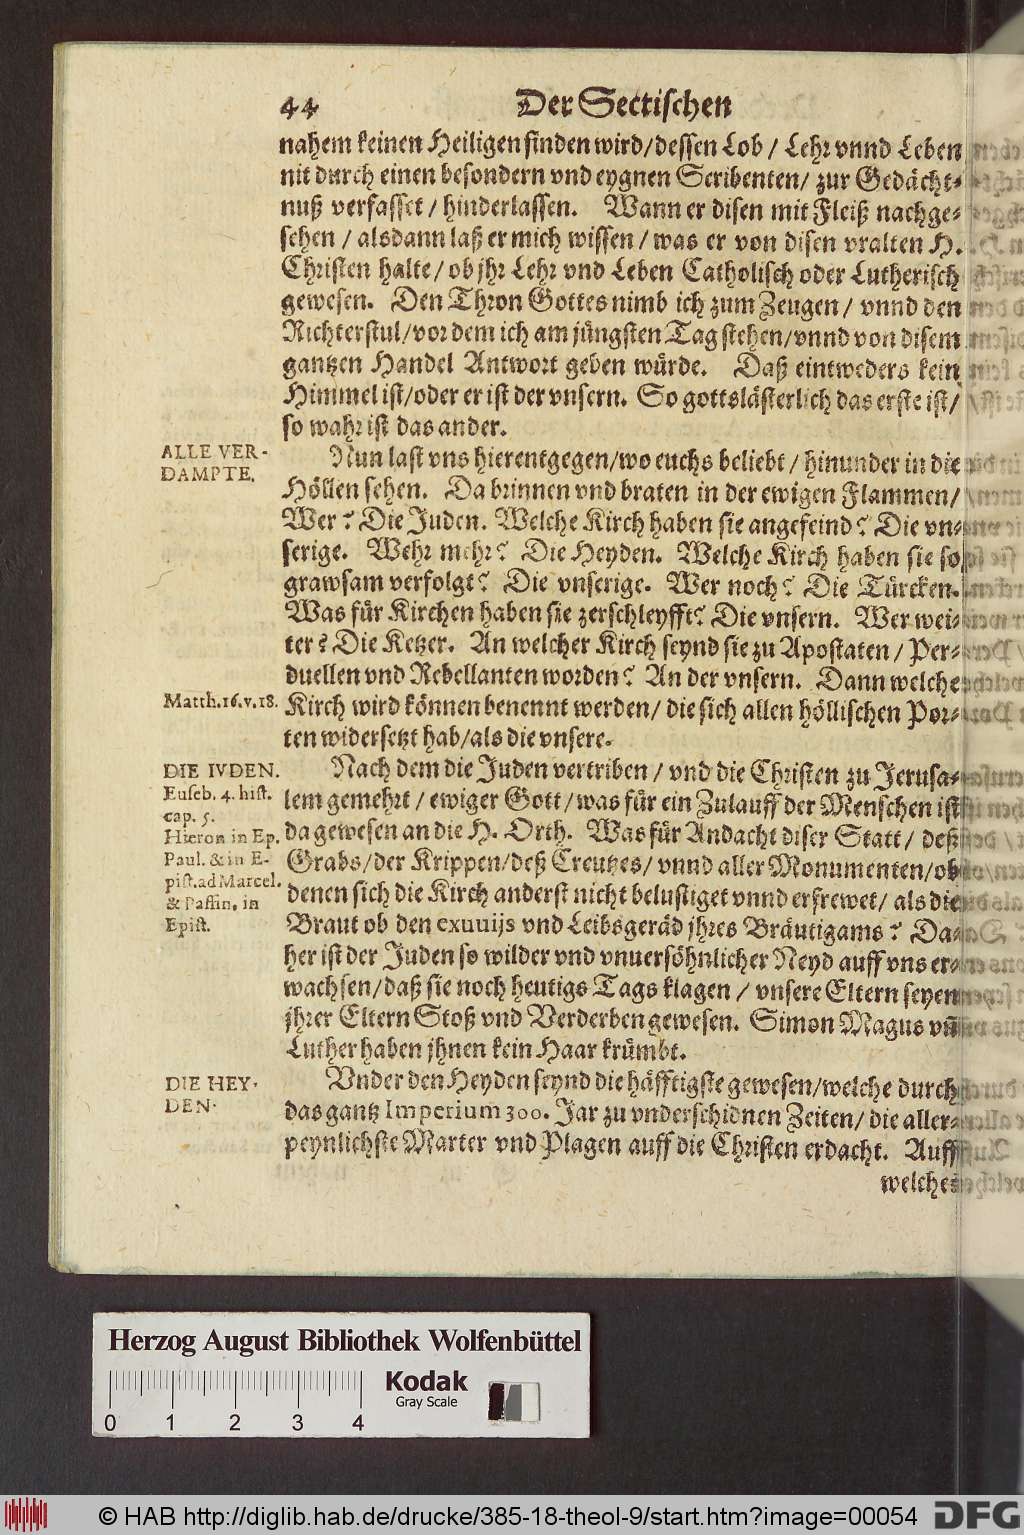 44 Der Sectischen
nahem keinen Heiligen finden wird/dessen Lob / Lehr vnnd Leben
nit durch einen besondern vnd eygnen Scribenten/ zur Gedächt-
nuß verfasset / hinderlassen. Wann er disen mit Fleiß nachge-
sehen / alsdann laß er mich wissen / was er von disen vralten H.
Christen halte / ob jhr Lehr vnd Leben Catholisch oder Lutherisch
gewesen. Den Thron Gottes nimb ich zum Zeugen / vnnd den
Richterstul/vor dem ich am jüngsten Tag stehen/vnnd von disem
gantzen Handel Antwort geben würde. Daß eintweders kein
Himmel ist/oder er ist der vnsern. So gottslästerlich das erste ist/
so wahr ist das ander.
ALLE VER-
DAMPTE.
Nun last vns hierentgegen/wo euchs beliebt / hinunder in die
Höllen sehen. Da brinnen vnd braten in der ewigen Flammen/
Wer? Die Juden. Welche Kirch haben sie angefeind? Die vn-
serige. Wehr mehr? Die Heyden. Welche Kirch haben sie so
grawsam verfolgt? Die vnserige. Wer noch? Die Türcken.
Was für Kirchen haben sie zerschleyfft? Die vnsern. Wer wei-
ter? Die Ketzer. An welcher Kirch seynd sie zu Apostaten / Per-
duellen vnd Rebellanten worden? An der vnsern. Dann welche
Matth.16.v.18.
Kirch wird können benennt werden/ die sich allen höllischen Por-
ten widersetzt hab/als die vnsere.
DIE IVDEN.
Euseb. 4. hist.
cap. 5.
Hieron in Ep.
Paul. & in E-
pist. ad Marcel.
& Passin. in
Epist.
Nach dem die Juden vertriben / vnd die Christen zu Jerusa-
lem gemehrt / ewiger Gott / was für ein Zulauff der Menschen ist
da gewesen an die H. Orth. Was für Andacht diser Statt / deß
Grabs / der Krippen/deß Creutzes / vnnd aller Monumenten/ob
denen sich die Kirch anderst nicht belustiget vnnd erfrewet/ als die
Braut ob den exuuijs vnd Leibsgeräd jhres Bräutigams? Da-
her ist der Juden so wilder vnd vnuersöhnlicher Neyd auff vns er-
wachsen/daß sie noch heutigs Tags klagen / vnsere Eltern seyen
jhrer Eltern Stoß vnd Verderben gewesen. Simon Magus vñ
Luther haben jhnen kein Haar krümbt.
DIE HEY-
DEN.
Vnder den Heyden seynd die häfftigste gewesen/welche durch
das gantz Imperium 300. Jar zu vnderschidnen Zeiten/ die aller-
peynlichste Marter vnd Plagen auff die Christen erdacht. Auff
welches
Herzog August Bibliothek Wolfenbüttel
Kodak
Gray Scale
0 1 2 3 4
© HAB http://diglib.hab.de/drucke/385-18-theol-9/start.htm?image=00054
DFG